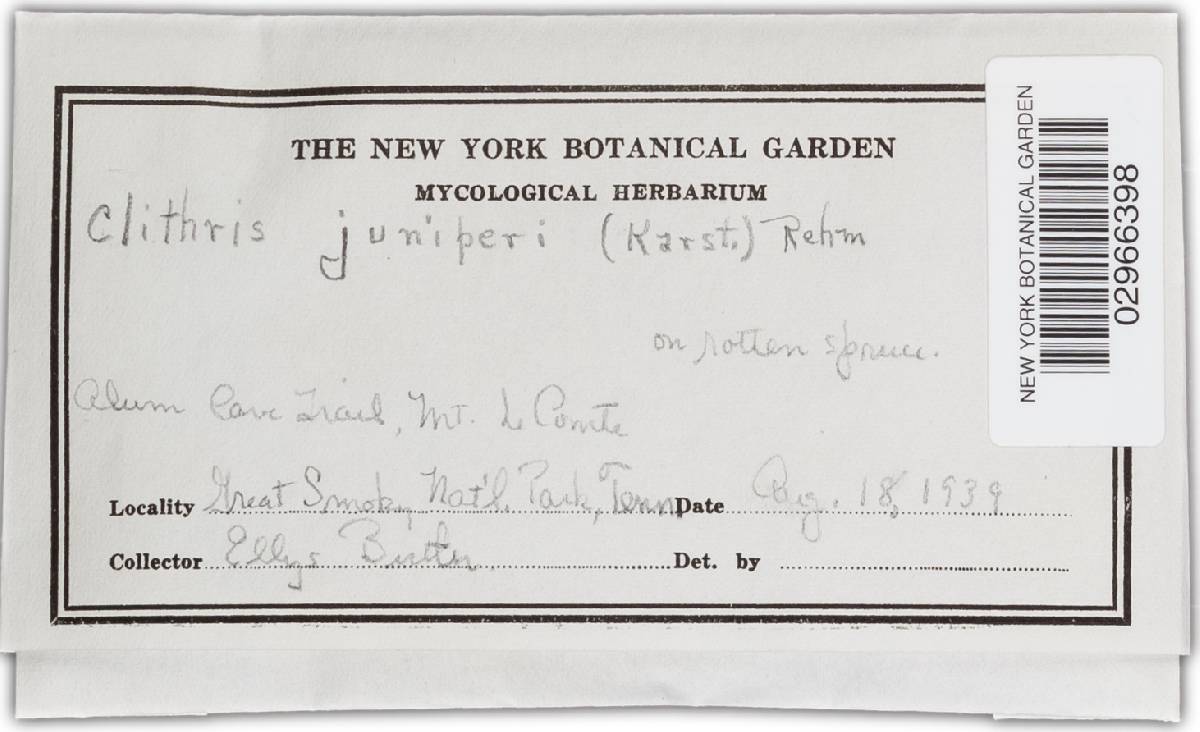 THE NEW YORK BOTANICAL GARDEN
MYCOLOGICAL HERBARIUM
Clithris juniperi (Karst.) Rehm
on rotten spruce.
Alum Cave Trail, Mt. Le Conte
Locality Great Smoky Nat'l. Park, Tenn Date Aug. 18, 1939
Collector Ellys Butler Det. by
NEW YORK BOTANICAL GARDEN
02966398